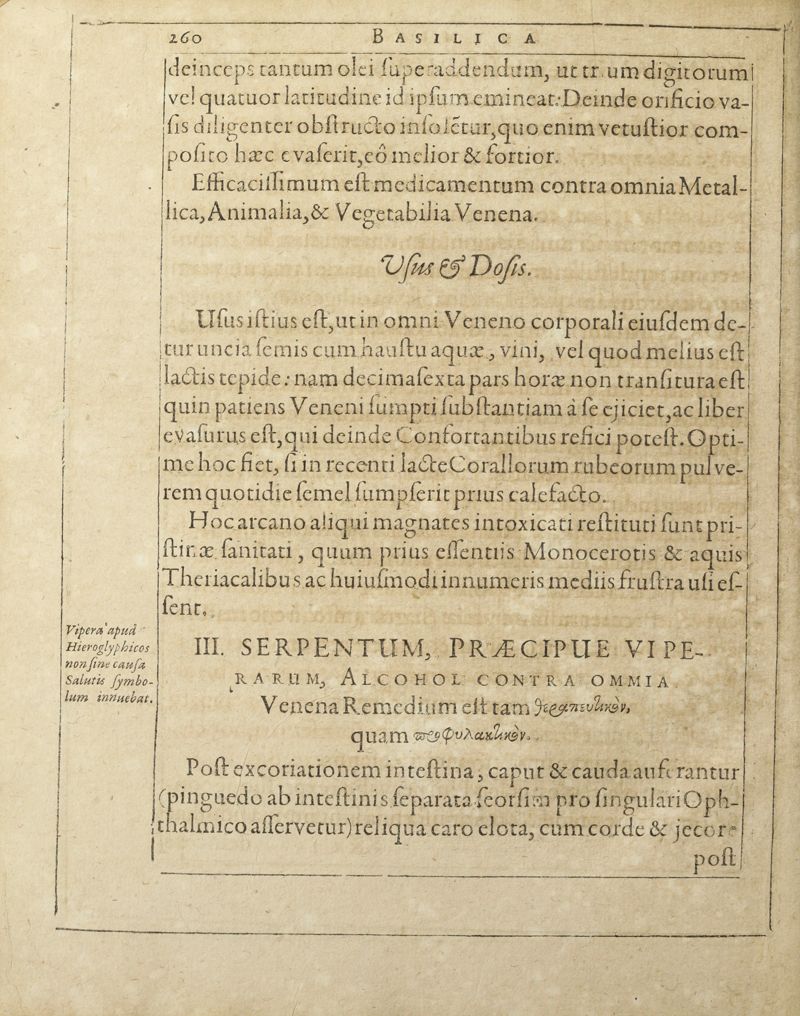 260 BASILICA
deinceps tantum olei superaddendum, ut trium digitorum
vel quatuor latitudine id ipsum emineat: Deinde orificio va-
sis diligenter obstructo insoletur, quo enim vetustior com-
posito hæc evaserit, eò melior & fortior.
Efficacissimum est medicamentum contra omnia Metal-
lica, Animalia, & Vegetabilia Venena.
Usus & Dosis.
Usus istius est, ut in omni Veneno corporali eiusdem de-
tur uncia semis cum haustu aquæ, vini, vel quod melius est
lactis tepide: nam decimasexta pars horæ non transitura est
quin patiens Veneni sumpti substantiam à se ejiciet, ac liber
evasurus est, qui deinde Confortantibus refici potest. Opti-
me hoc fiet, si in recenti lacte Corallorum rubeorum pulve-
rem quotidie semel sumpserit prius calefacto.
Hoc arcano aliqui magnates intoxicati restituti sunt pri-
stinæ sanitati, quum prius essentiis Monocerotis & aquis
Theriacalibus ac huiusmodi innumeris mediis frustra usi es-
sent.
Vipera apud
Hieroglyphicos
non sine causa
Salutis symbo-
lum innuebat.
III. SERPENTUM, PRÆCIPUE VIPE-
RARUM, ALCOHOL CONTRA OMMIA
Venena Remedium est tam θεραπευτικὸν,
quam προφυλακτικὸν.
Post excoriationem intestina, caput & cauda auferantur
(pinguedo ab intestinis separata seorsim pro singulari Oph-
thalmico asservetur) reliqua caro elota, cum corde & jecore
post